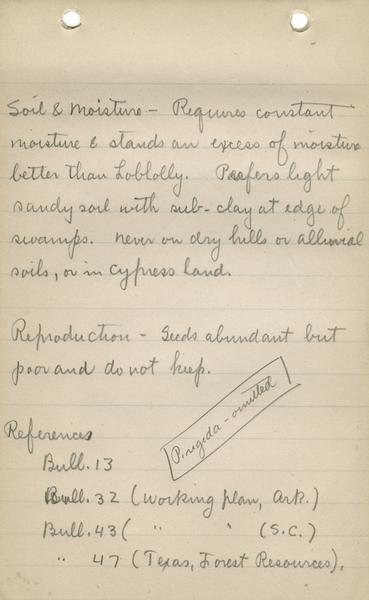 Soil & Moisture – Requires constant
moisture & stands an excess of moisture
better than Loblolly. Prefers light
sandy soil with sub-clay at edge of
swamps. never on dry hills or alluvial
soils, or in cypress land.
Reproduction – Seeds abundant but
poor and do not keep.
P. rigida – omitted
References
Bull. 13
Bull. 32 (Working plan, Ark.)
Bull. 43 ( " " (S.C.)
" 47 (Texas, Forest Resources).